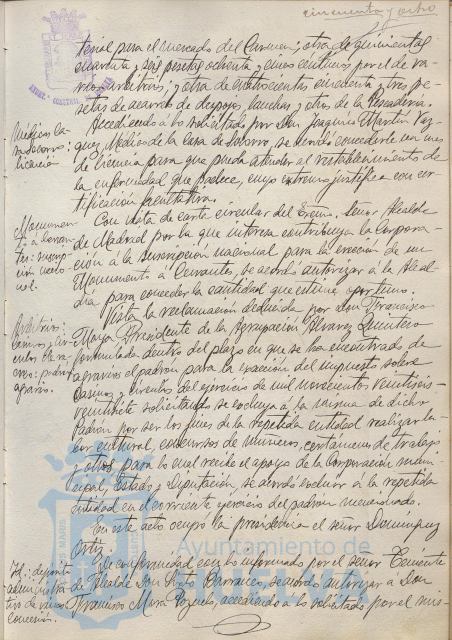 cincuenta y ocho
terial para el mercado del Carmen; otra de quinientas
cuarenta y seis pesetas ochenta y cinco céntimos por el de va-
rios arbitrios; y otra de cuatrocientas cincuenta y tres pe-
setas de acarreo de despojos, lanchas y otros de la Pescadería.
Médicos Ca-
sa Socorro:
licencia
Accediendo a lo solicitado por Don Joaquín Martín Vaz-
quez, Médico de la Casa de Socorro, se acordó concederle un mes
de licencia para que pueda atender al restablecimiento de
la enfermedad que padece, cuyo extremo justifica con cer-
tificación facultativa.
Monumen-
to a Cervan-
tes: suscrip-
ción nacio-
nal.
Con vista de carta circular del Excmo. Señor Alcalde
de Madrid por la que interesa contribuya la Corpora-
ción a la suscripción nacional para la erección de un
Monumento a Cervantes, se acordó autorizar a la Alcal-
día para conceder la cantidad que estime oportuno.
Arbitrios:
Casinos y cír-
culos de re-
creo: padrón
agravios.
Vista la reclamación deducida por Don Francisco
Moya, Presidente de la Agrupación Alvarez Quintero
formulada dentro del plazo en que se ha encontrado de
agravios el padrón para la exacción del impuesto sobre
casinos y círculos del ejercicio de mil novecientos veintiseis-
veintisiete solicitando se excluya á la misma de dicho
Padrón por ser los fines de la repetida entidad realizar la-
bor cultural, concursos de muñecos, certámenes de trabajo
y otros para lo cual recibe el apoyo de la Corporación muni-
cipal, Estado y Diputación, se acordó excluir a la repetida
entidad en el corriente ejercicio del padrón mencionado.
En este acto ocupó la presidencia el señor Dominguez
Ortiz.
Id.: depósito
administra-
tivo de vinos:
concesión.
De conformidad con lo informado por el señor Teniente
de Alcalde Don Sixto Barranco, se acordó autorizar a Don
Francisco Mora Pozuelo, accediendo a lo solicitado por el mis-
Ayuntamiento de
HUELVA